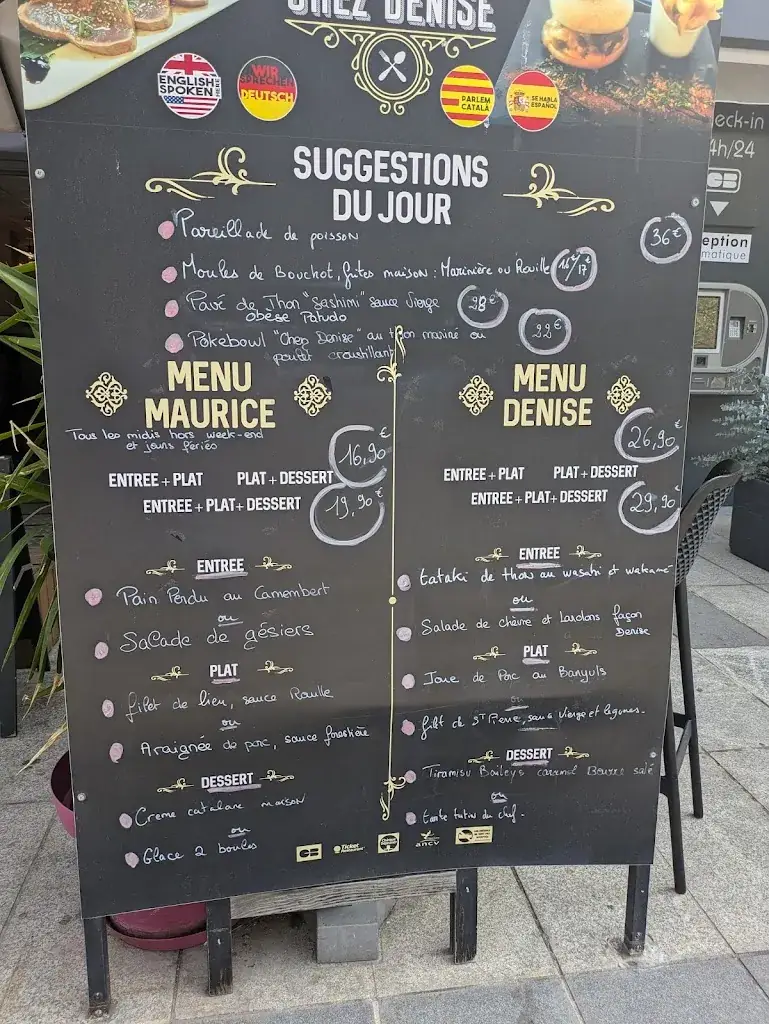 CHEZ DENISE
ENGLISH SPOKEN HERE
WIR SPRECHEN DEUTSCH
PARLEM CATALÀ
SE HABLA ESPAÑOL
SUGGESTIONS
DU JOUR
Pareillade de poisson 36€
Moules de Bouchot, frites maison : Marinière ou Rouille 17€
Pavé de Thon "Sashimi" sauce Vierge 28€
obèse Patudo
Pokebowl "Chez Denise" au thon mariné ou 22€
poulet croustillant
MENU
MAURICE
Tous les midis hors week-end
et jours fériés
ENTREE + PLAT PLAT + DESSERT 16,90€
ENTREE + PLAT + DESSERT 19,90€
ENTREE
Pain Perdu au Camembert
ou
Salade de gésiers
PLAT
filet de lieu, sauce Rouille
ou
Araignée de porc, sauce forestière
DESSERT
Creme catalane maison
ou
Glace 2 boules
MENU
DENISE
26,90€
ENTREE + PLAT PLAT + DESSERT
ENTREE + PLAT + DESSERT 29,90€
ENTREE
tataki de thon au wasabi et wakamé
ou
Salade de chèvre et Lardons façon
Denise
PLAT
Joue de Porc au Banyuls
ou
filet de ST Pierre, sauce Vierge et legumes.
DESSERT
Tiramisu Baileys caramel Beurre salé
ou
tarte tatin du chef.
CB
Ticket
Restaurant
ancv
eck-in
4h/24
CB
eption
matique